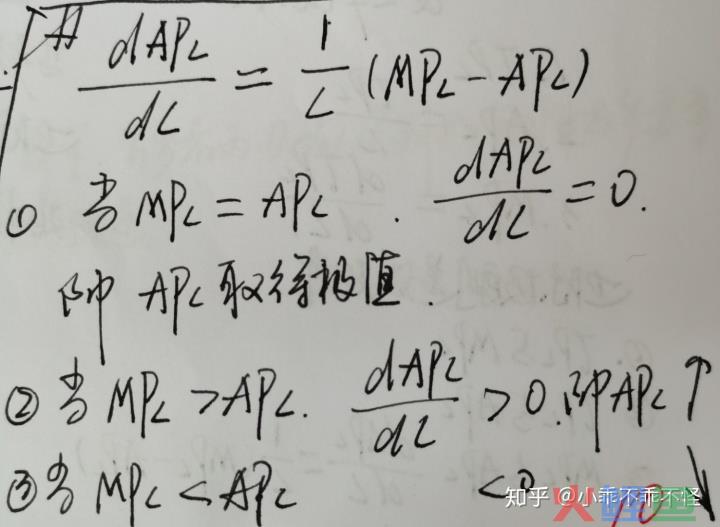 dAP_L/dL = 1/L (MP_L - AP_L)
① 当 MP_L = AP_L . dAP_L/dL = 0.
即 AP_L 取得极值.
② 当 MP_L > AP_L. dAP_L/dL > 0.即AP_L ↑
③ 当 MP_L < AP_L <0 ↓
知乎 @小乖不乖不怪